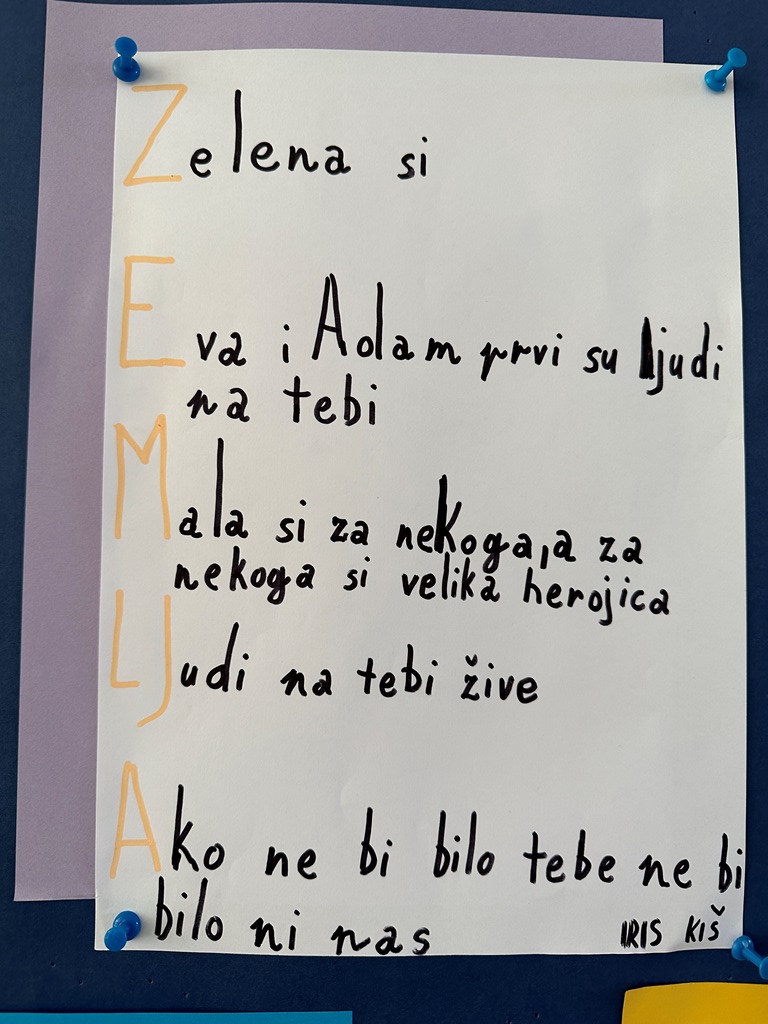 Zelena si
Eva i Adam prvi su ljudi
na tebi
Mala si za nekoga, a za
nekoga si velika herojica
LJudi na tebi žive
Ako ne bi bilo tebe ne bi
bilo ni nas
IRIS KIŠ